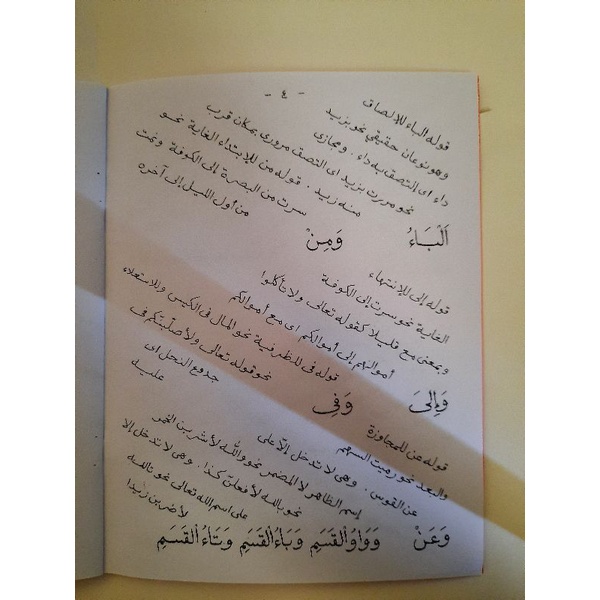 - ٤ -
قوله الباء للإلصاق
وهو نوعان حقيقي نحو بزيد
داء اى التصق به داء . ومجازى
نحو مررت بزيد اى التصق مرورى بمكان قرب
منه زيد . قوله من للابتداء الغاية نحو
سرت من البصرة إلى الكوفة ونمت
من أول الليل إلى آخره
اَلْبَاءُ وَمِنْ
قوله إلى للإنتهاء
الغاية نحو سرت إلى الكوفة
وبمعنى مع قليلا كقوله تعالى ولا تأكلوا
أموالهم إلى أموالكم اى مع أموالكم
قوله فى للظرفية نحو المال فى الكيس وللاستعلاء
نحو قوله تعالى ولأصلبنكم فى
جذوع النخل اى
عليه
وَإِلَىٰ وَفِى
قوله عن للمجاوزة
والبعد نحو رميت السهم
عن القوس . وهى لا تدخل إلا على
إسم الظاهر لا المضمر نحو والله لأشربن الخمر
نحو بالله لأفعلن كذا . وهى لا تدخل إلا
على اسم الله تعالى نحو تالله
لأضربن زيدا
وَعَنْ وَوَاوُ الْقَسَمِ وَبَاءُ الْقَسَمِ وَتَاءُ الْقَسَمِ